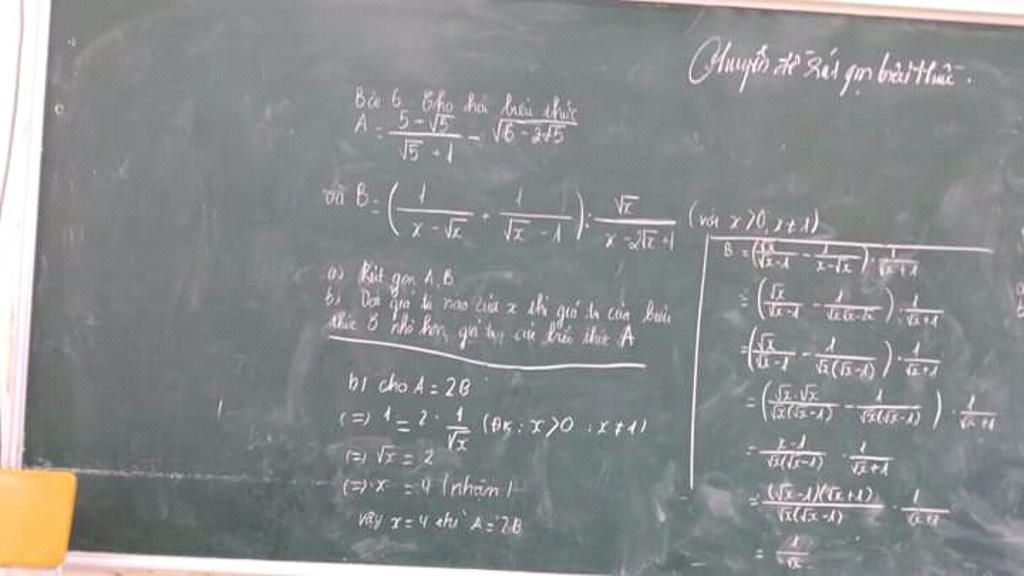 Chuyên đề Rút gọn biểu thức.
Bài 6. Cho hai biểu thức
A = (5 - √5)/(√5 + 1) - √(6 - 2√5)
và B = (1/(x - √x) + 1/(√x - 1)) : √x/(x - 2√x + 1) (với x > 0, x ≠ 1)
a) Rút gọn A, B
b) Với giá trị nào của x thì giá trị của biểu
thức B nhỏ hơn giá trị của biểu thức A
b) cho A = 2B
(=) 1 = 2 · 1/√x (ĐK: x > 0 ; x ≠ 1)
(=) √x = 2
(=) x = 4 (nhận)
Vậy x = 4 thì A = 2B
B = (√x/(√x - 1) - 1/(x - √x)) · 1/(√x + 1)
= (√x/(√x - 1) - 1/(√x√x - √x)) · 1/(√x + 1)
= (√x/(√x - 1) - 1/(√x(√x - 1))) · 1/(√x + 1)
= (√x · √x/(√x(√x - 1)) - 1/(√x(√x - 1))) · 1/(√x + 1)
= (x - 1)/(√x(√x - 1)) · 1/(√x + 1)
= (√x - 1)(√x + 1)/(√x(√x - 1)) · 1/(√x + 1)
= 1/√x